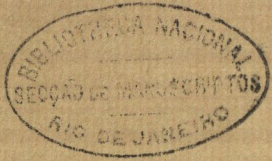 BIBLIOTHECA NACIONAL
SECÇÃO DE MANUSCRIPTOS
RIO DE JANEIRO